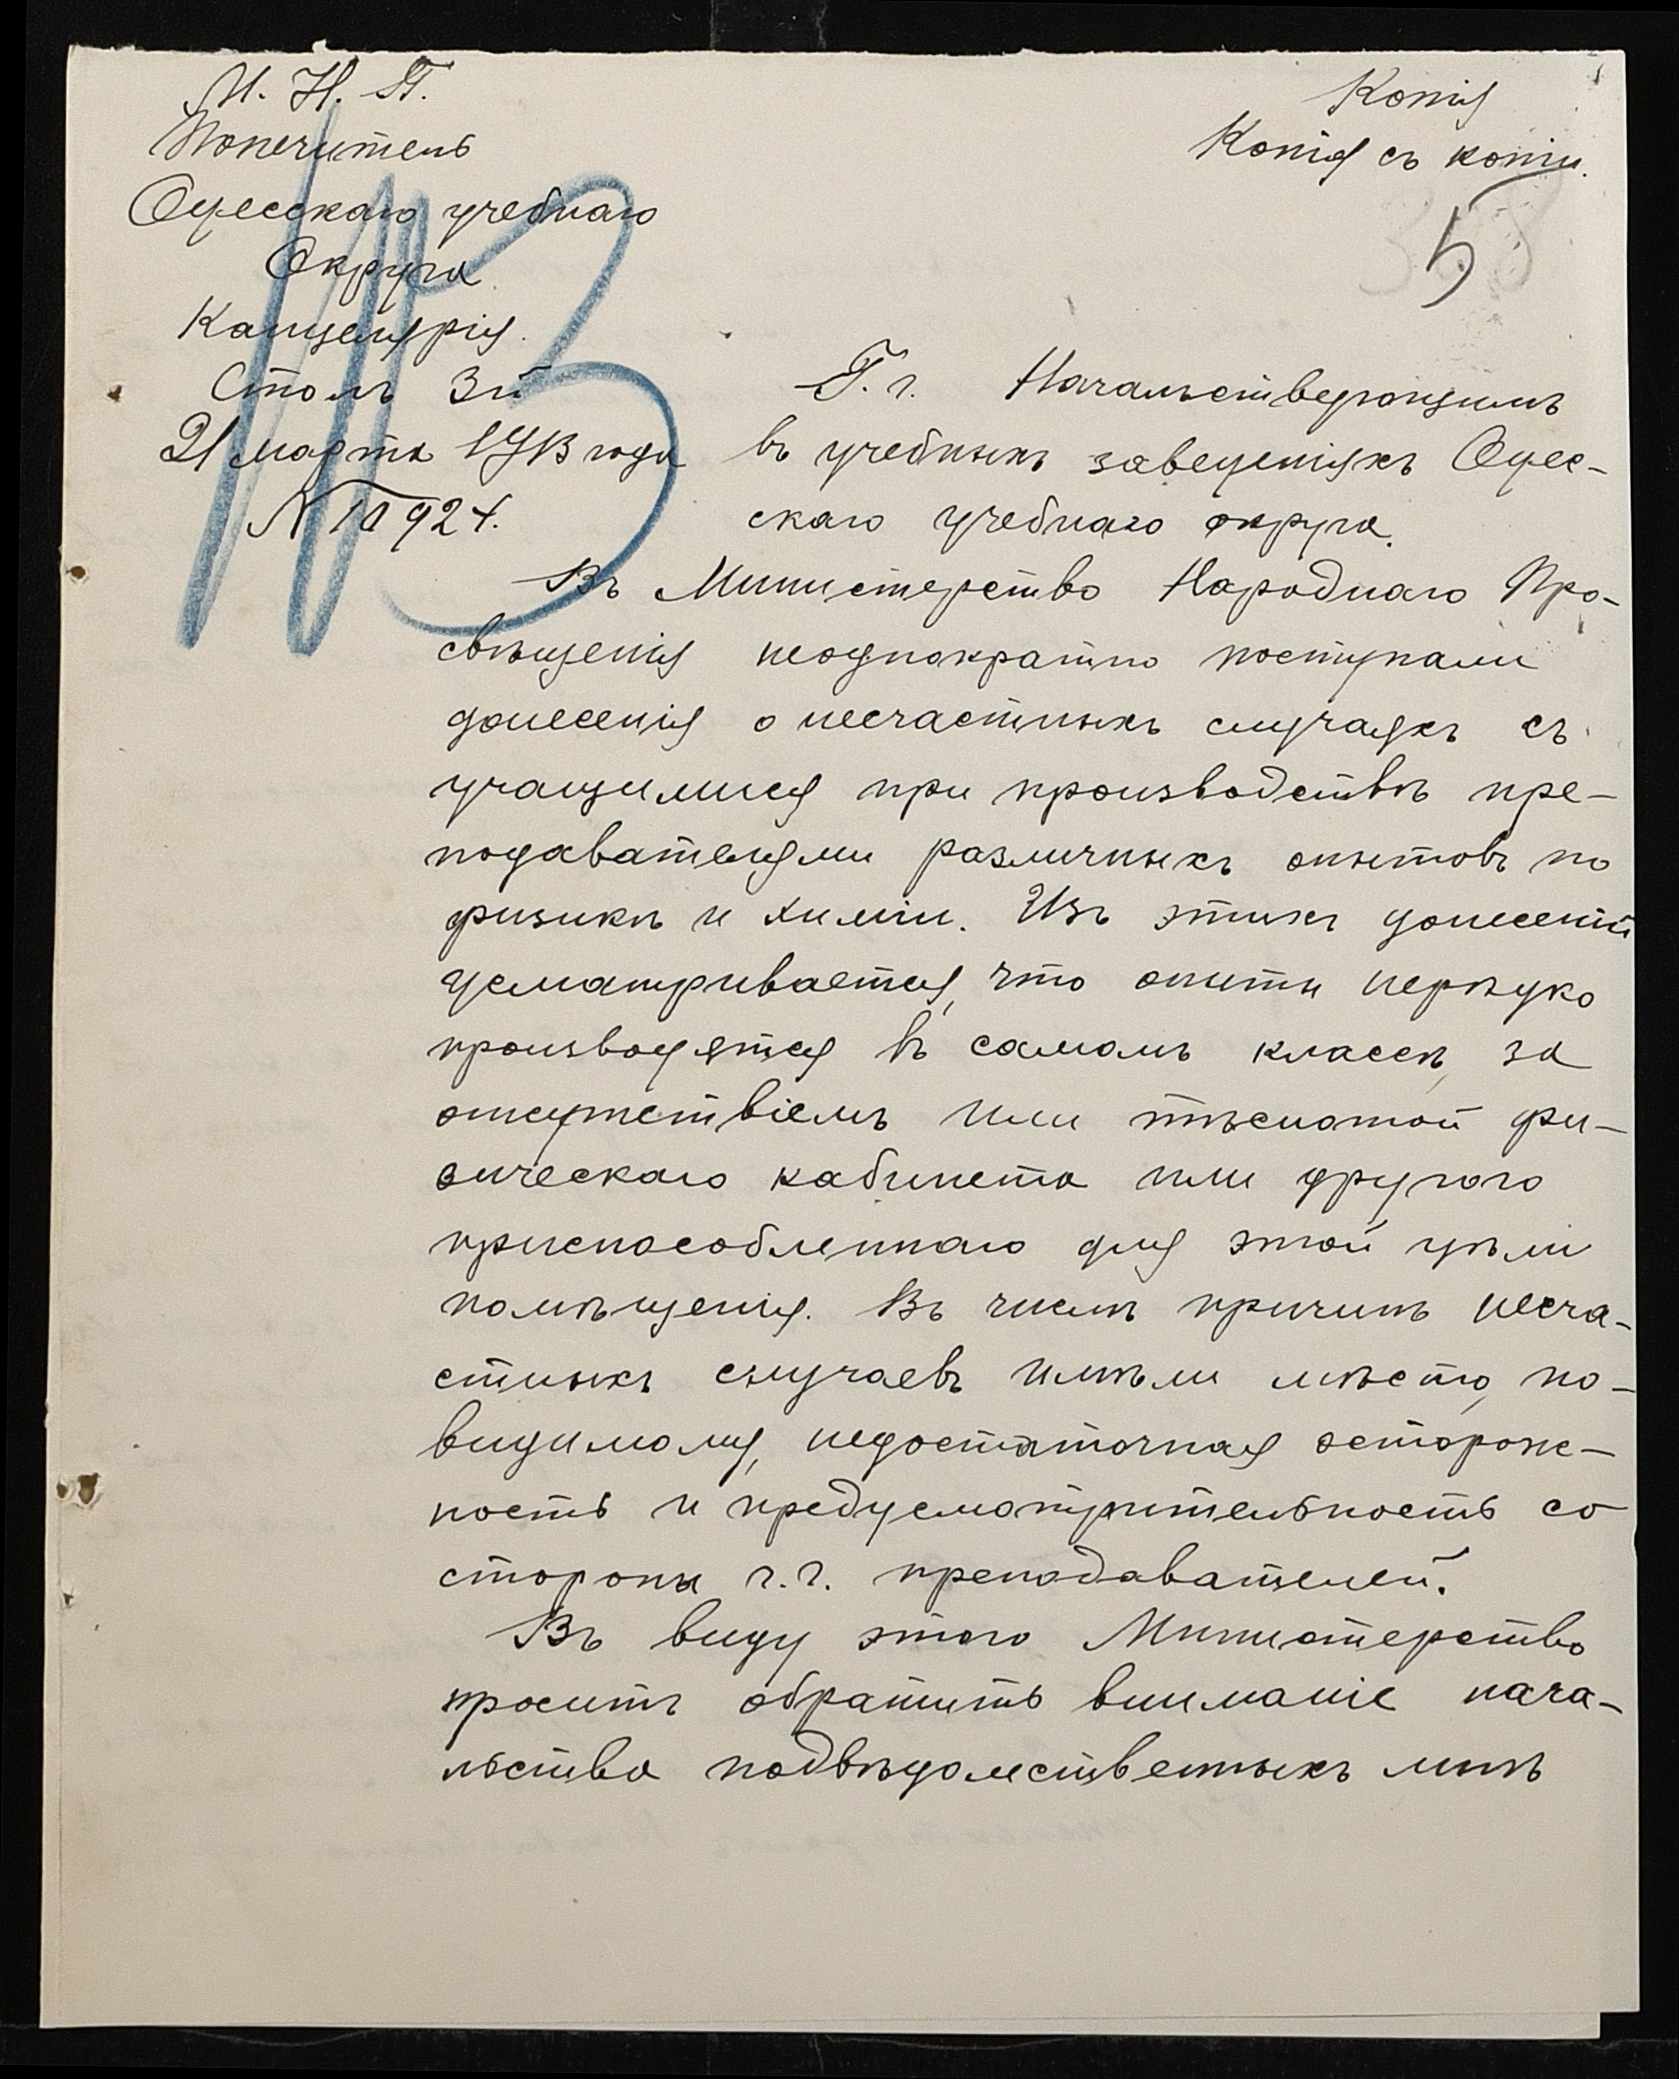 М. Н. П.
Попечитель
Одесскаго учебнаго
Округа
Канцелярія.
Столъ 3й
21 марта 1913 года
N 10924.
Копія
Копія съ копіи.
5
Г. г. Начальствующимъ
въ учебныхъ заведеніяхъ Одес-
скаго учебнаго округа.
Въ Министерство Народнаго Про-
свѣщенія неоднократно поступали
донесенія о несчастныхъ случаяхъ съ
учащимися при производствѣ пре-
подавателями различныхъ опытовъ по
физикѣ и химіи. Изъ этихъ донесеній
усматривается, что опыты нерѣдко
производятся въ самомъ классѣ, за
отсутствіемъ или тѣснотой фи-
зическаго кабинета или другого
приспособленнаго для этой цѣли
помѣщенія. Въ числѣ причинъ несча-
стныхъ случаевъ имѣли мѣсто, по-
видимому, недостаточная осторож-
ность и предусмотрительность со
стороны г.г. преподавателей.
Въ виду этого Министерство
проситъ обратить вниманіе нача-
льства подвѣдомственныхъ мнѣ